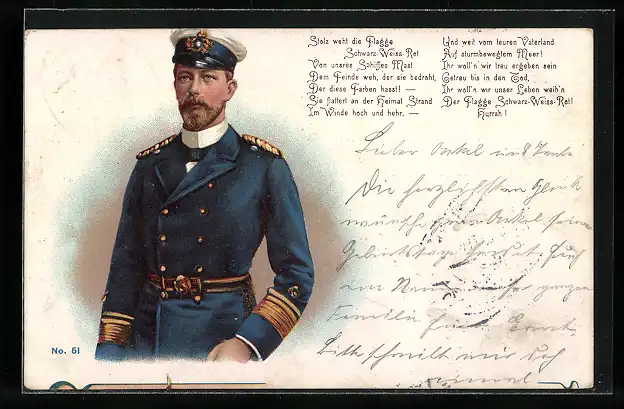 Stolz weht die Flagge
Schwarz-Weiss-Rot
Von unsres Schiffes Mast
Dem Feinde weh, der sie bedroht,
Der diese Farben hasst! —
Sie flattert an der Heimat Strand
Im Winde hoch und hehr, —
Und weit vom teuren Vaterland
Auf sturmbewegtem Meer!
Ihr woll'n wir treu ergeben sein
Getreu bis in den Tod,
Ihr woll'n wir unser Leben weih'n
Der Flagge Schwarz-Weiss-Rot!
Hurrah!
Lieber Onkel und Tante
Die herzlichsten Glück
wünsche Onkel
Geburtstage
ganzen
Familie Ernst
Bitte mir doch
No. 51